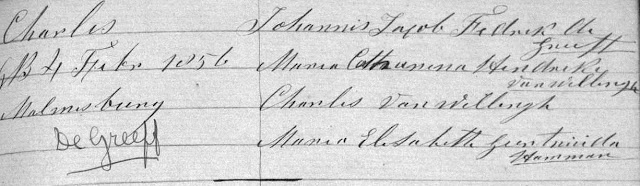 Charles
B 4 Febr 1856
Malmesburg
De Greeff
Johannis Jacob Fedrik De
Greeff
Maria Catharina Hendrika
Van Willingh
Charles Van Willingh
Maria Elisabeth Geertruida
Hamman